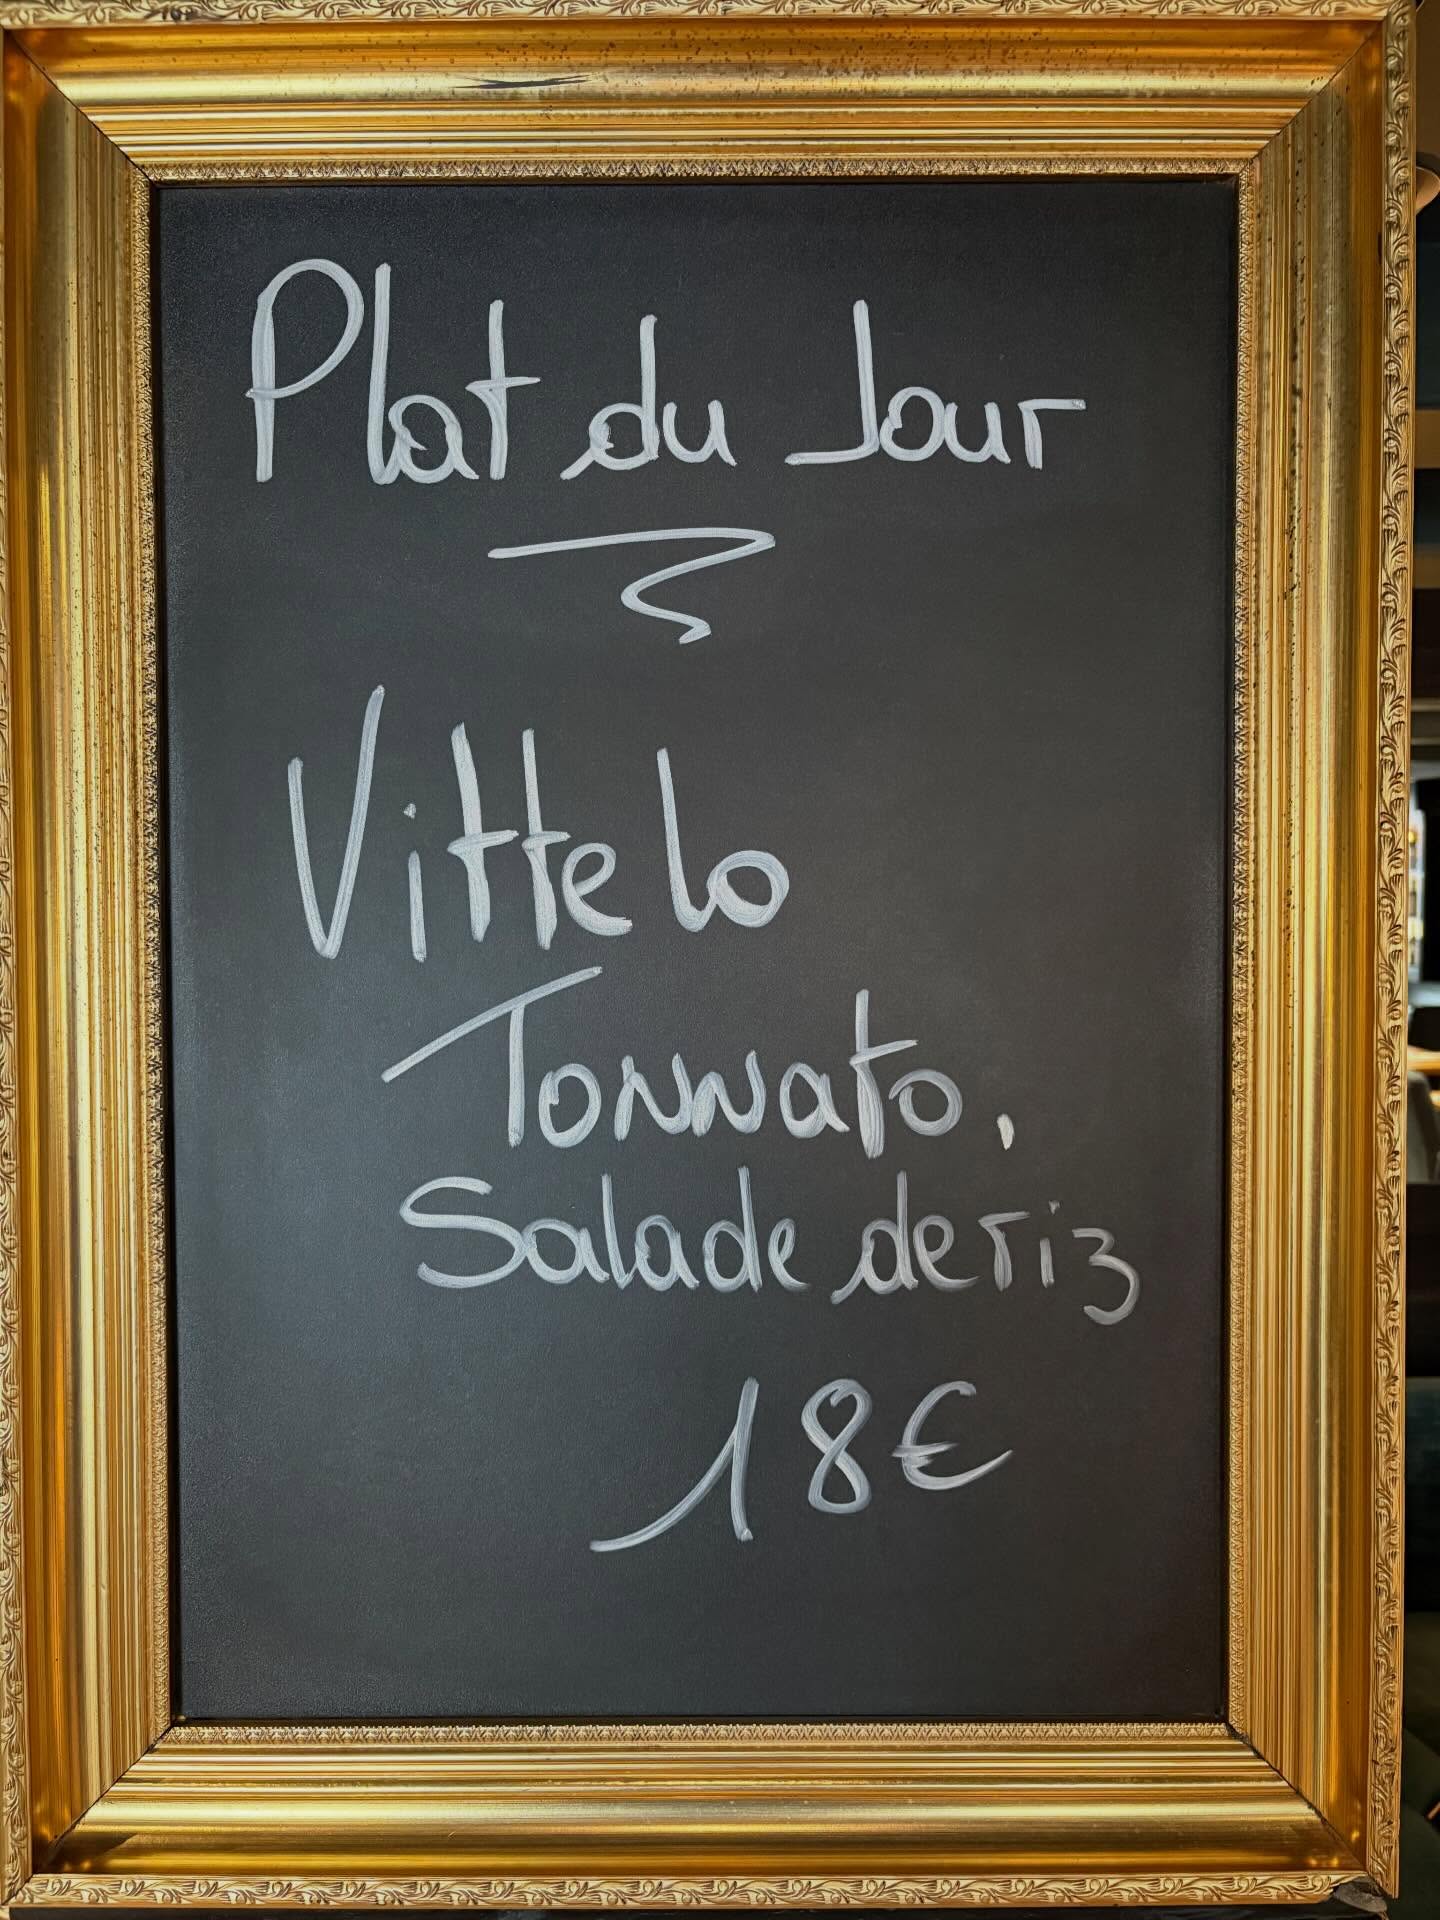 Plat du Jour
Vittelo
Tonnato.
Salade de riz
18€